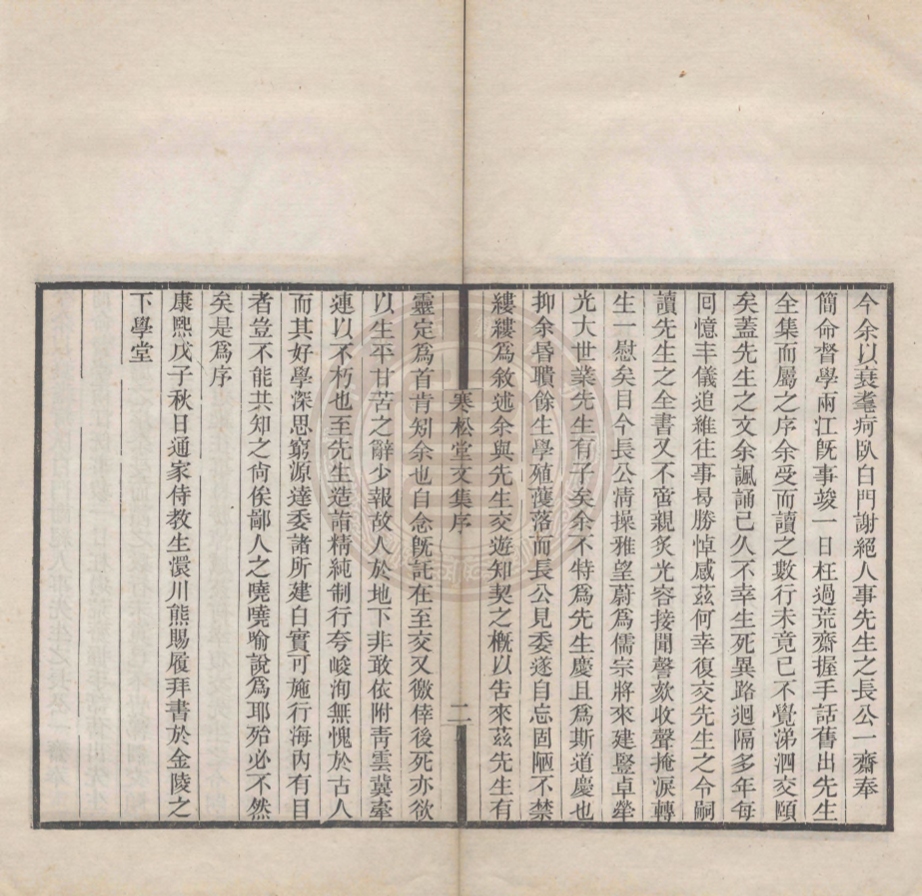 今余以衰耄疴臥白門謝絕人事先生之長公一齋奉
簡命督學兩江旣事竣一日枉過荒齋握手話舊出先生
全集而屬之序余受而讀之數行未竟已不覺涕泗交頤
矣蓋先生之文余諷誦已久不幸生死異路迴隔多年每
回憶丰儀追維往事曷勝悼感茲何幸復交先生之令嗣
讀先生之全書又不啻親炙光容接聞謦欬收聲掩淚轉
生一慰矣目今長公淸操雅望蔚爲儒宗將來建豎卓犖
光大世業先生有子矣余不特爲先生慶且爲斯道慶也
抑余昬聵餘生學殖荒落而長公見委遂自忘固陋不禁
縷縷爲敘述余與先生交遊知契之槪以吿來茲先生有
寒松堂文集序
二
靈定爲首肯矧余也自念旣託在至交又徼倖後死亦欲
以生平甘苦之辭少報故人於地下非敢依附靑雲冀牽
連以不朽也至先生造詣精純制行夸峻洵無愧於古人
而其好學深思窮源達委諸所建白實可施行海內有目
者豈不能共知之尙俟鄙人之曉曉喻說爲耶殆必不然
矣是爲序
康熙戊子秋日通家侍教生澴川熊賜履拜書於金陵之
下學堂